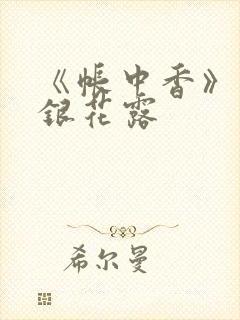 《帐中香》
银花露
希尔曼